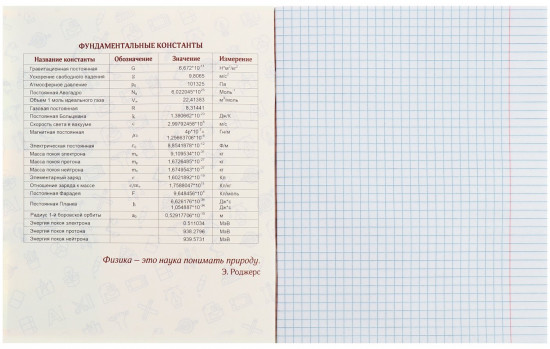 ФУНДАМЕНТАЛЬНЫЕ КОНСТАНТЫ
Название константы Обозначение Значение Измерение
Гравитационная постоянная G 6,672*10⁻¹¹ Н*м²/кг²
Ускорение свободного падения g 9,8065 м/с²
Атмосферное давление p₀ 101325 Па
Постоянная Авогадро 6,022045*10²³ Моль⁻¹
Объем 1 моль идеального газа V₀ 22,41383 м³/моль
Газовая постоянная R 8,31441
Постоянная Больцмана k Дж/К
Скорость света в вакууме c 2,99792458*10⁸ м/с
Магнитная постоянная Гн/м
Электрическая постоянная Ф/м
Масса покоя электрона 9,109534*10⁻³¹ кг
Масса покоя протона кг
Масса покоя нейтрона кг
Элементарный заряд e Кл
Отношение заряда к массе Кл/кг
Постоянная Фарадея F Кл/моль
Постоянная Планка Дж*с
Дж*с
Радиус 1-й боровской орбиты a₀ м
Энергия покоя электрона 0,511034 МэВ
Энергия покоя протона 938,2796 МэВ
Энергия покоя нейтрона 939,5731 МэВ
Физика – это наука понимать природу.
Э. Роджерс